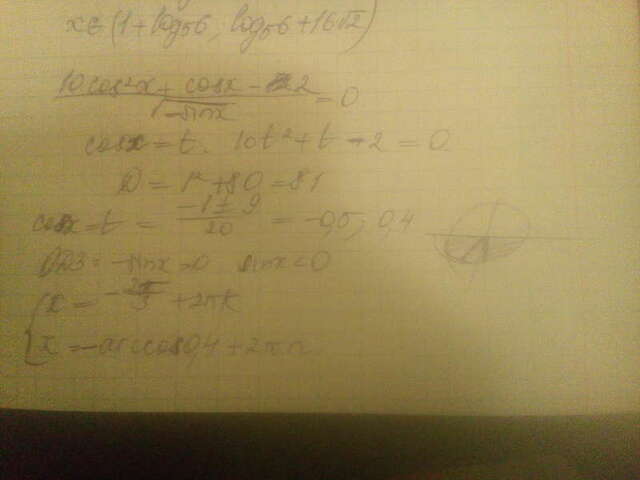 x∈(1+log₅6, log₅6+16√2)
(10cos²x + cosx - 2)/√(-sinx) = 0
cosx = t. 10t² + t - 2 = 0
D = 1² + 80 = 81
cosx = t = (-1 ± 9)/20 = -0,5; 0,4
ОДЗ = -sinx > 0 sinx < 0
{ x = -2π/3 + 2πk
x = -arccos0,4 + 2πn